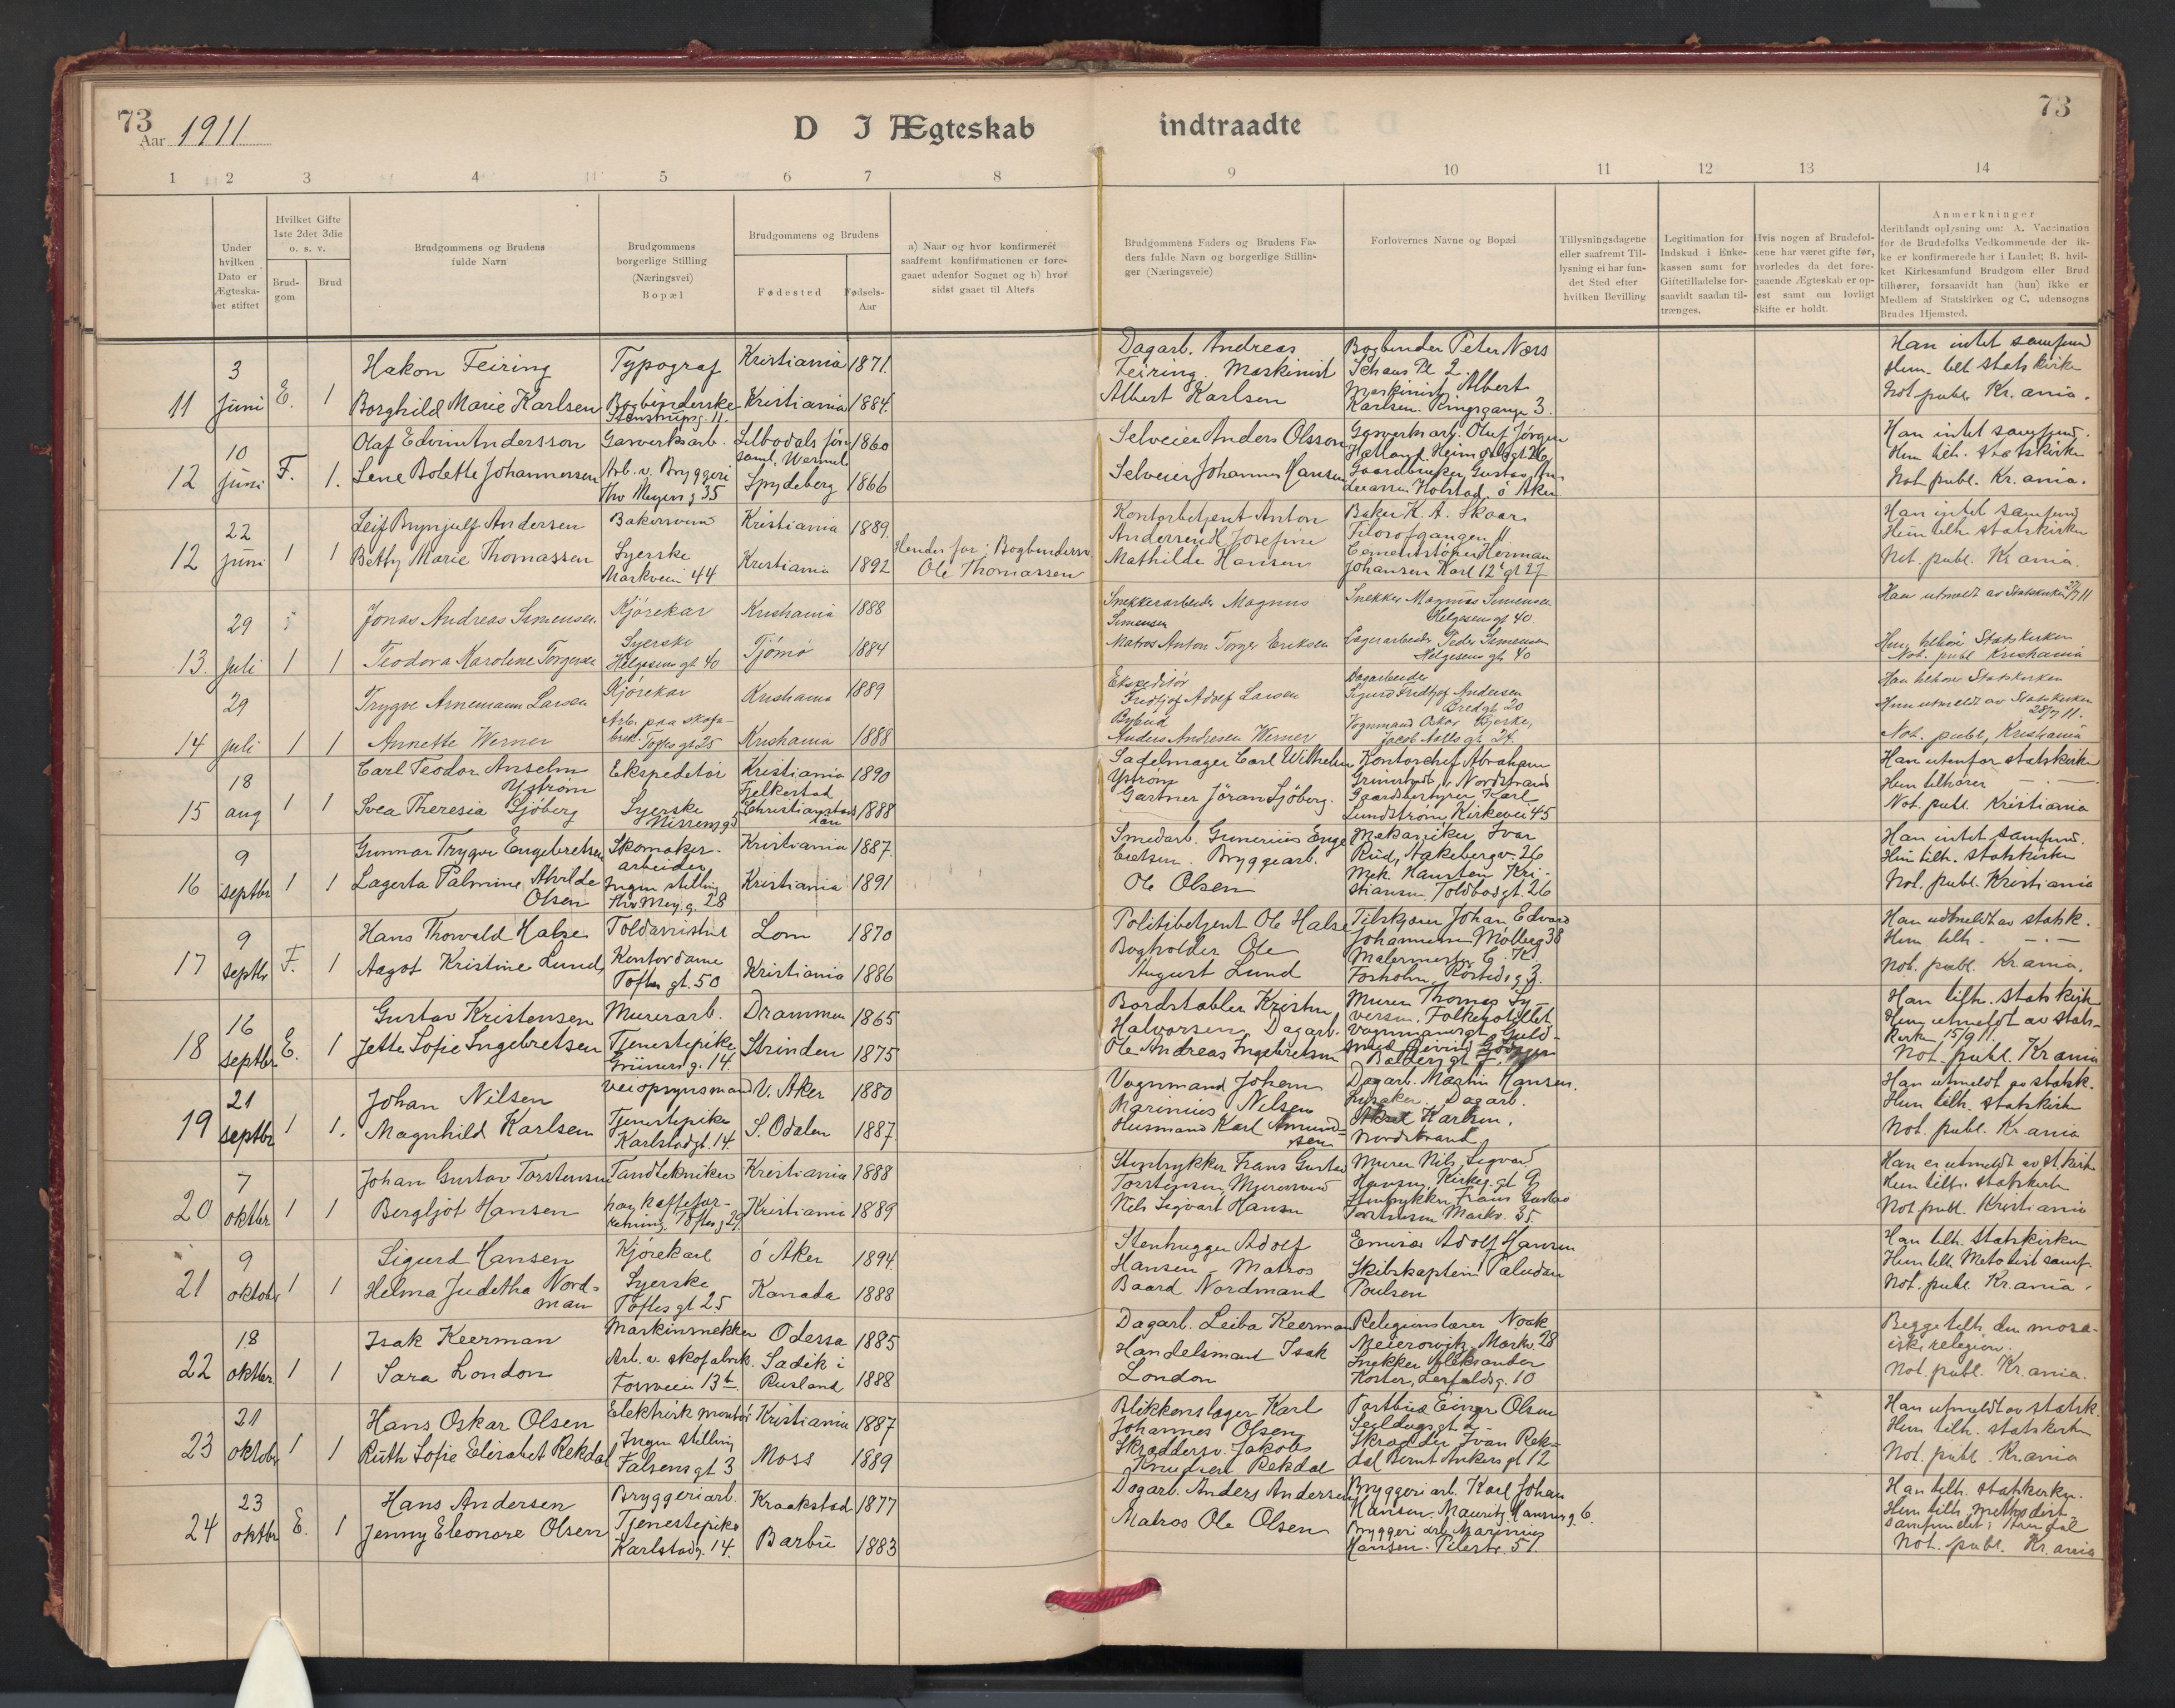 73
Aar 1911
D I Ægteskab indtraadte
73
1 2 3 4 5 6 7 8 9 10 11 12 13 14
Under hvilken Dato er Ægteska- bet stiftet
Hvilket Gifte 1ste 2det 3die o. s. v.
Brud- gom
Brud
Brudgommens og Brudens fulde Navn
Brudgommens borgerlige Stilling (Næringsvei) Bopæl
Brudgommens og Brudens
Fødested
Fødsels- Aar
a) Naar og hvor konfirmeret saafremt konfirmationen er fore- gaaet udenfor Sognet og b) hvor sidst gaaet til Alters
Brudgommens Faders og Brudens Fa- ders fulde Navn og borgerlige Stillin- ger (Næringsveie)
Forlovernes Navne og Bopæl
Tillysningsdagene eller saafremt Til- lysning ei har fun- det Sted efter hvilken Bevilling
Legitimation for Indskud i Enke- kassen samt for Giftetilladelse for- saavidt saadan til- trænges.
Hvis nogen af Brudefol- kene har været gifte før, hvorledes da det fore- gaaende Ægteskab er op- løst samt om lovligt Skifte er holdt.
Anmerkninger
deriblandt oplysning om: A. Vaccination for de Brudefolks Vedkommende der ik- ke er konfirmerede her i Landet; B. hvil- ket Kirkesamfund Brudgom eller Brud tilhører, forsaavidt han (hun) ikke er Medlem af Statskirken og C. udensogns Brudes Hjemsted.
11 3 juni E. 1
Hakon Feiring Typograf Kristiania 1871.
Borghild Marie Karlsen Bogbinderske Kristiania 1884.
Stenstrupsg. 11.
Dagarb. Andreas
Feiring. Maskinist
Albert Karlsen
Bogbinder Peter Næss
Schaus Pl 2.
Maskinist Albert
Karlsen. Ringsgangen 3.
Han intet samfund
Hun tilh statskirke
Not publ Kr.ania.
12 10 juni F. 1.
Olaf Edvin Andersson Gasverksarb. 1860
saml, Wermel
Lene Bolette Johannessen Arb. v. Bryggeri Spydeberg 1866
Thv Meyers g 35
Selveier Anders Olsson
Selveier Johannes Hansen
Gasverksarb. Oluf Jørgen
Hæland. Heimdalsgt 26
Gaardbruker Gustav An-
dreassen Holstad, ö Aker
Han intet samfund.
Hun tilh. statskirke
Not publ. Kr.ania.
12 22 juni 1 1
Leif Brynjulf Andersen Bakersvend Kristiania 1889.
Betty Marie Thomassen Syerske Kristiania 1892
Markveien 44
Hendes far: Bogbindersv.
Ole Thomassen
Kontorbetjent Anton
Andersen H Josefine
Mathilde Hansen
Baker K. A. Skaar
Filosofgangen 11.
Cementstøper Herman
Johansen Karl 12' gt 27
Han intet samfund
Hun tilh statskirken
Not. publ. Kr ania.
13. 29 juli 1 1
Jonas Andreas Simensen Kjørekar Kristiania 1888
Teodora Karoline Torgersen Syerske Tjømø 1884
Helgesens gt 40
Snekkerarbeider Magnus
Simensen
Matros Anton Torger Eriksen
Snekker Magnus Simensen
Helgesens gt 40.
Lagerarbeider Peder Simensen
Helgesens gt 40
Han utmeldt av Statskirken 27/7 11
Hun tilhøre Statskirken
Not. publ Kristiania
14 29 juli 1 1
Trygve Arnemann Larsen Kjørekar Kristiania 1889
Annette Werner Arb. paa skofa-
brik. Toftes gt 25 Kristiania 1888
Ekspeditør
Fridtjof Adolf Larsen
Bybud
Anders Andresen Werner
Dagarbeider
Sigurd Fridtjof Andersen
Bredgt 20
Vognmand Oskar Bjerke,
Jacob Aalls gt. 24.
Han tilhøre Statskirken
Hun utmeldt av Statskirken
28/7 11.
Not. publ, Kristiania
15 18 aug 1 1
Carl Teodor Anselm Ekspeditør Kristiania 1890
Yström Fjelkestad
Svea Theresia Sjöberg Syerske Christianstads 1888
Nissens g 5 län
Sadelmager Carl Wilhelm
Yström
Gartner Jöran Sjöberg.
Kontorchef Abraham
Grimstvedt, Nordstrand
Gaardbestyrer Karl
Lundström Kirkevei 45
Han utenfor statskirke
Hun tilhører — . —
Not. publ. Kristiania
16 9 septbr 1 1
Gunnar Trygve Engebretsen Skomaker- Kristiania 1887.
arbeider
Lagerta Palmine Alvilde Ingen stilling Kristiania 1891
Olsen Thv. Mey. g. 28
Smedarb. Gunerius Enge
bretsen. Bryggearb.
Ole Olsen
Mekaniker Ivar
Rud, Aakebergv. 26
Mek. Karsten Kri-
stiansen, Toldbodgt. 26
Han intet samfund.
Hun tilh. statskirken
Not. publ. Kristiania
17 9 septbr F. 1
Hans Thorvald Halse Toldassistent Lom 1870
Aagot Kristine Lund Kontordame Kristiania 1886
Toftes gt. 50
Politibetjent Ole Halse
Bogholder Ole
August Lund
Tilskjærer Johan Edvard
Johannessen Mølleg 38
Malermester C. H.
Forsholm, Röstedsg 3.
Han udmeldt av statsk.
Hun tilh. — . —
Not. publ. Kr.ania.
18 16 septbr E. 1
Gustav Kristensen Murerarb. Drammen 1865
Jette Sofie Ingebretsen Tjenestepike Strinden 1875
Grüners g. 14.
Bordstabler Kristen
Halvorsen, Dagarb.
Ole Andreas Ingebretsen
Murer Thomas Sy-
versen. Folkehotellet
Vognmannsgt Guld-
smed Eivind
Balders gt 7.
Han tilh. statskirke
Hun utmeldt av stats-
kirken 15/9 11.
Not. publ. Kr.ania
19 21 septbr 1 1.
Johan Nilsen Veiopsynsmand V. Aker 1880
Magnhild Karlsen Tjenestepike S. Odalen 1887
Karlstadgt. 14.
Vognmand Johan
Marinius Nilsen
Husmand Karl Amund-
sen
Dagarb. Martin Hansen.
Lysaker. Dagarb.
Aksel Karlsen.
Nordstrand.
Han utmeldt av statsk.
Hun tilh. statskirke
Not. publ. Kr.ania
20 7 oktbr 1 1
Johan Gustav Torstensen Tandtekniker Kristiania 1888
Bergljot Hansen har kaffefor- Kristiania 1889
retning, Toftes g 29.
Stentrykker Frans Gustav
Torstensen, Murersvend
Nils Sigvart Hansen
Murer Nils Sigvard
Hansen, Kirkeg. gt 9
Stentrykker Frans Gustav
Torstensen Markv. 35.
Han er utmeldt av st.kirke
Hun tilh. statskirken
Not publ. Kristiania
21 9 oktobr 1 1
Sigurd Hansen Kjørekarl ö Aker 1894
Helma Judetha Nord- Syerske Kanada 1888
man Toftes gt 25
Stenhugger Adolf
Hansen Matros
Baard Nordmand
Emissær Adolf Hansen
Skibskaptein Paludan
Poulsen
Han tilh. Statskirken
Hun tilh. Metodist samf.
Not. publ. Kr.ania.
22 18 oktbr. 1 1
Isak Keerman Maskinsnekker Odessa 1885
Sara London Arb. v. skofabrik. Sadik i 1888
Fossveien 13b Rusland
Dagarb. Leiba Keerman
Handelsmand Isak
London
Religionslærer Noak
Meierowitz, Markv. 28
Snekker Aleksander
Koster, Lerfaldsg. 10
Begge tilh. den mosa-
iske religion.
Not. publ. Kr.ania.
23 21 oktobr 1 1
Hans Oskar Olsen Elektrisk montör Kristiania 1887
Ruth Sofie Elisabet Rekdal Ingen stilling Moss 1889
Falsens gt 3
Blikkenslager Karl
Johannes Olsen
Skræddersv. Jakob
Knudsen Rekdal
Postbud Einar Olsen
Seildugsgt
Skrædder Ivan Rek-
dal Bernt Ankers gt 12
Han utmeldt av statsk.
Hun tilh. statskirken
Not. publ. Kr.ania
24 23 oktbr E. 1
Hans Andersen Bryggeriarb. Kraakstad 1877
Jenny Eleonore Olsen Tjenestepike Barbu 1883
Karlstadg. 14.
Dagarb. Anders Andersen
Matros Ole Olsen
Bryggeri arb. Karl Johan
Hansen. Mauritz Hansens g. 6.
Bryggeri arb. Marinius
Hansen. Pilestr. 51.
Han tilh. statskirken.
Hun tilh. methodist-
samfundet i Arendal
Not. publ. Kr.ania